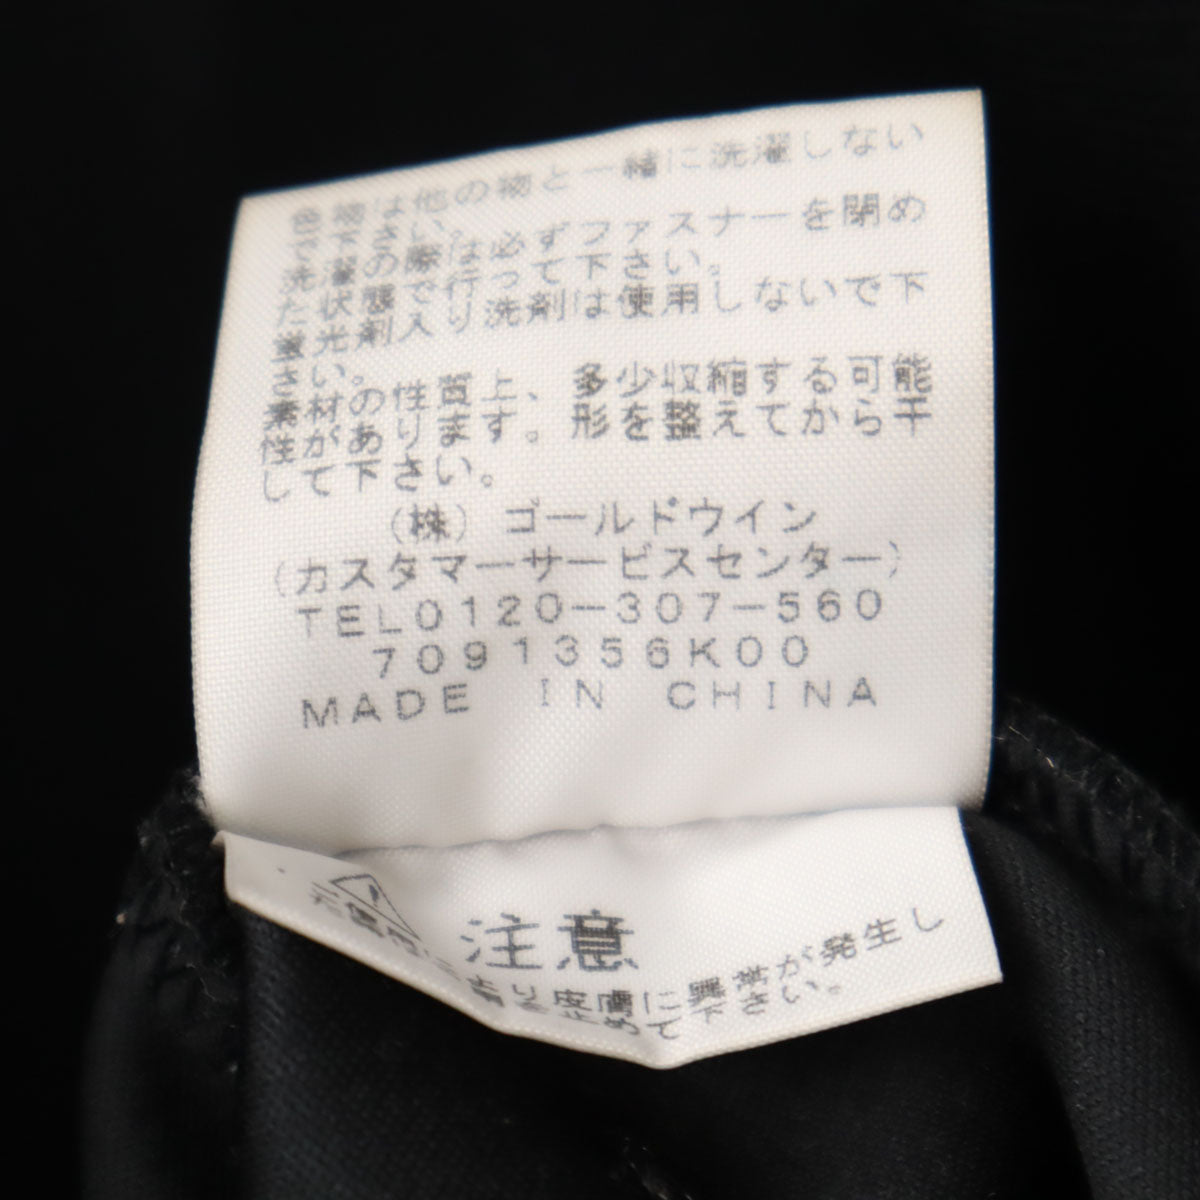 色物は他の物と一緒に洗濯しない
で下さい。
洗濯の際は必ずファスナーを閉め
た状態で行って下さい。
蛍光剤入り洗剤は使用しないで下
さい。
素材の性質上、多少収縮する可能
性があります。形を整えてから干
して下さい。
(株) ゴールドウイン
(カスタマーサービスセンター)
TEL0120-307-560
7091356K00
MADE IN CHINA
注意
皮膚に異常が発生し
止めて下さい。